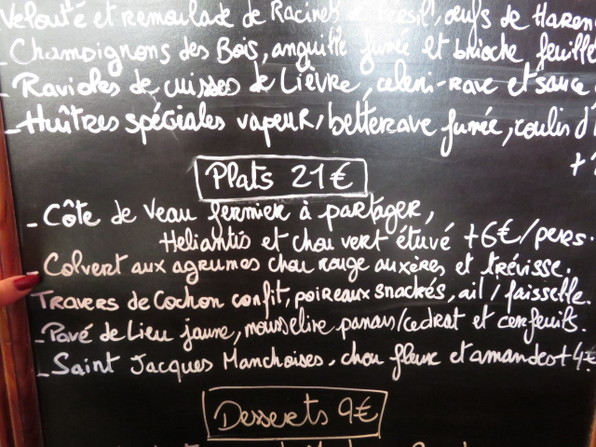 Velouté et remoulade de Racines Persil, œufs de Haren
- Champignons des Bois, anguille fumée et brioche feuille
- Ravioles de cuisses de Lièvre, celeri-rave et sauce
- Huîtres spéciales vapeur, betterave fumée, coulis d'
+
Plats 21€
- Côte de Veau fermier à partager,
Heliantis et chou vert étuvé +6€/pers.
- Colvert aux agrumes chou rouge auxères et trévisse.
Travers de Cochon confit, poireaux snackés, ail / faisselle.
- Pavé de Lieu jaune, mousseline panais/cedrat et cerfeuils.
- Saint Jacques Manchoises, chou fleur et amandes +4€
Desserts 9€